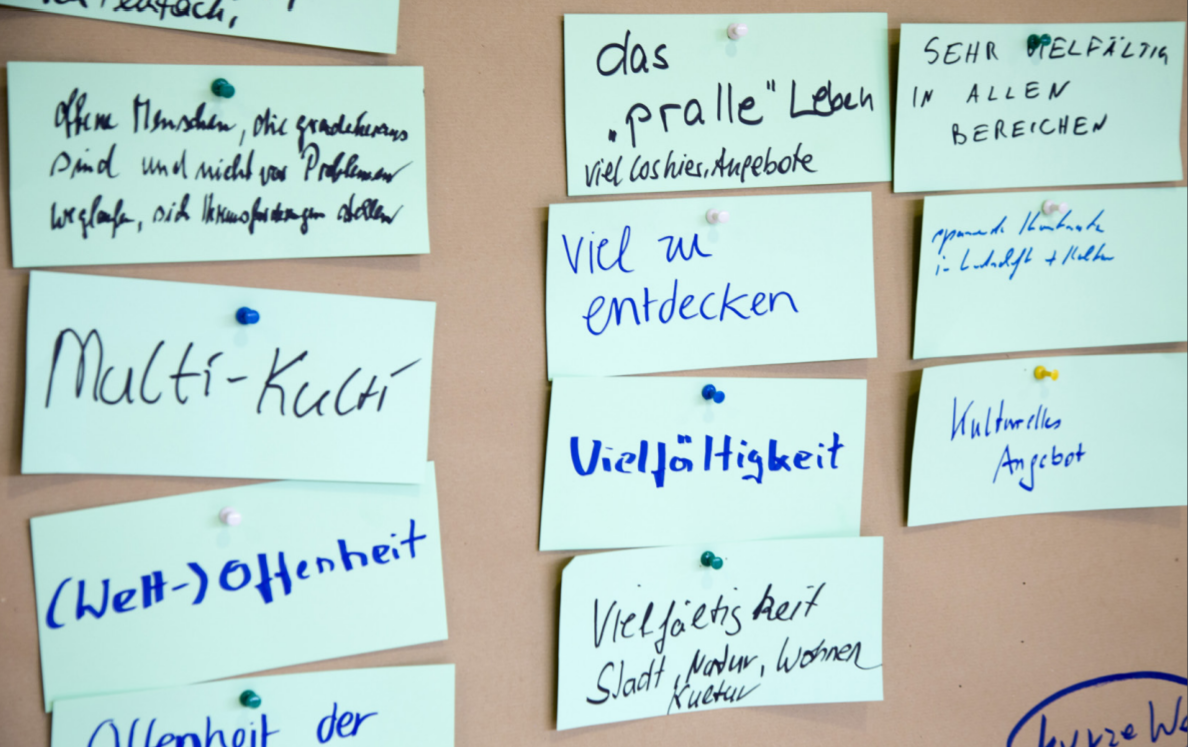 einfach,
offene Menschen, die geradeheraus
sind und nicht vor Problemen
weglaufen, sich Herausforderungen stellen
Multi-Kulti
(Welt-)Offenheit
Offenheit der
das
„pralle" Leben
viel los hier, Angebote
viel zu
entdecken
Vielfältigkeit
Vielfältigkeit
Stadt, Natur, Wohnen
Kultur
SEHR VIELFÄLTIG
IN ALLEN
BEREICHEN
spannende Kontraste
in Landschaft + Kultur
Kulturelles
Angebot
kurze